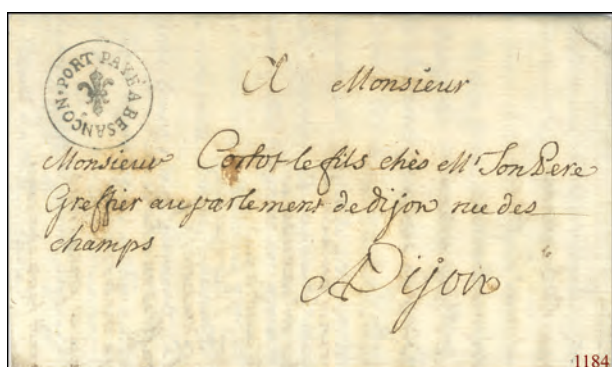 PORT PAYÉ A BESANÇON
A Monsieur
Monsieur Cortot le fils chès Mr Son Pere
Greffier au parlement de dijon rue des
champs
A Dijon
1184